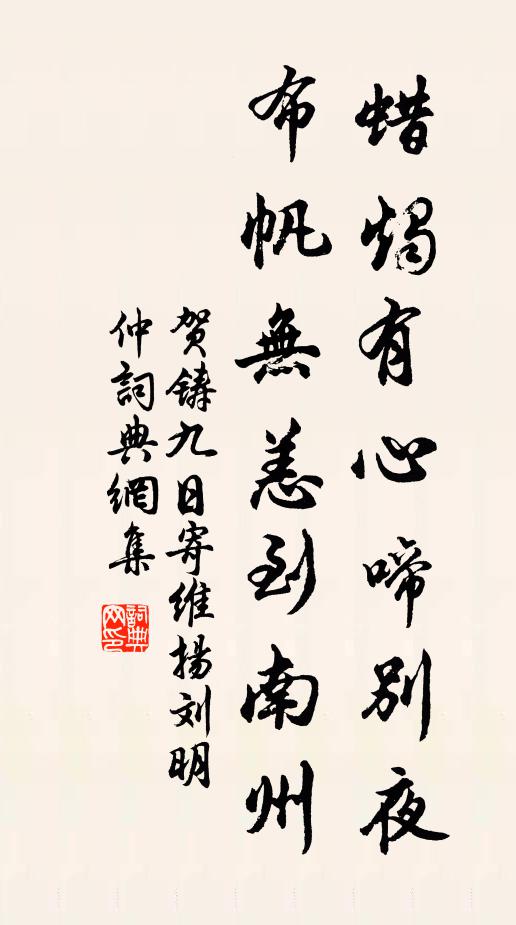 蜡烛有心啼别夜
布帆無恙到南州
贺铸九日寄維揚刘明
仲詞典網集
詞典
网印